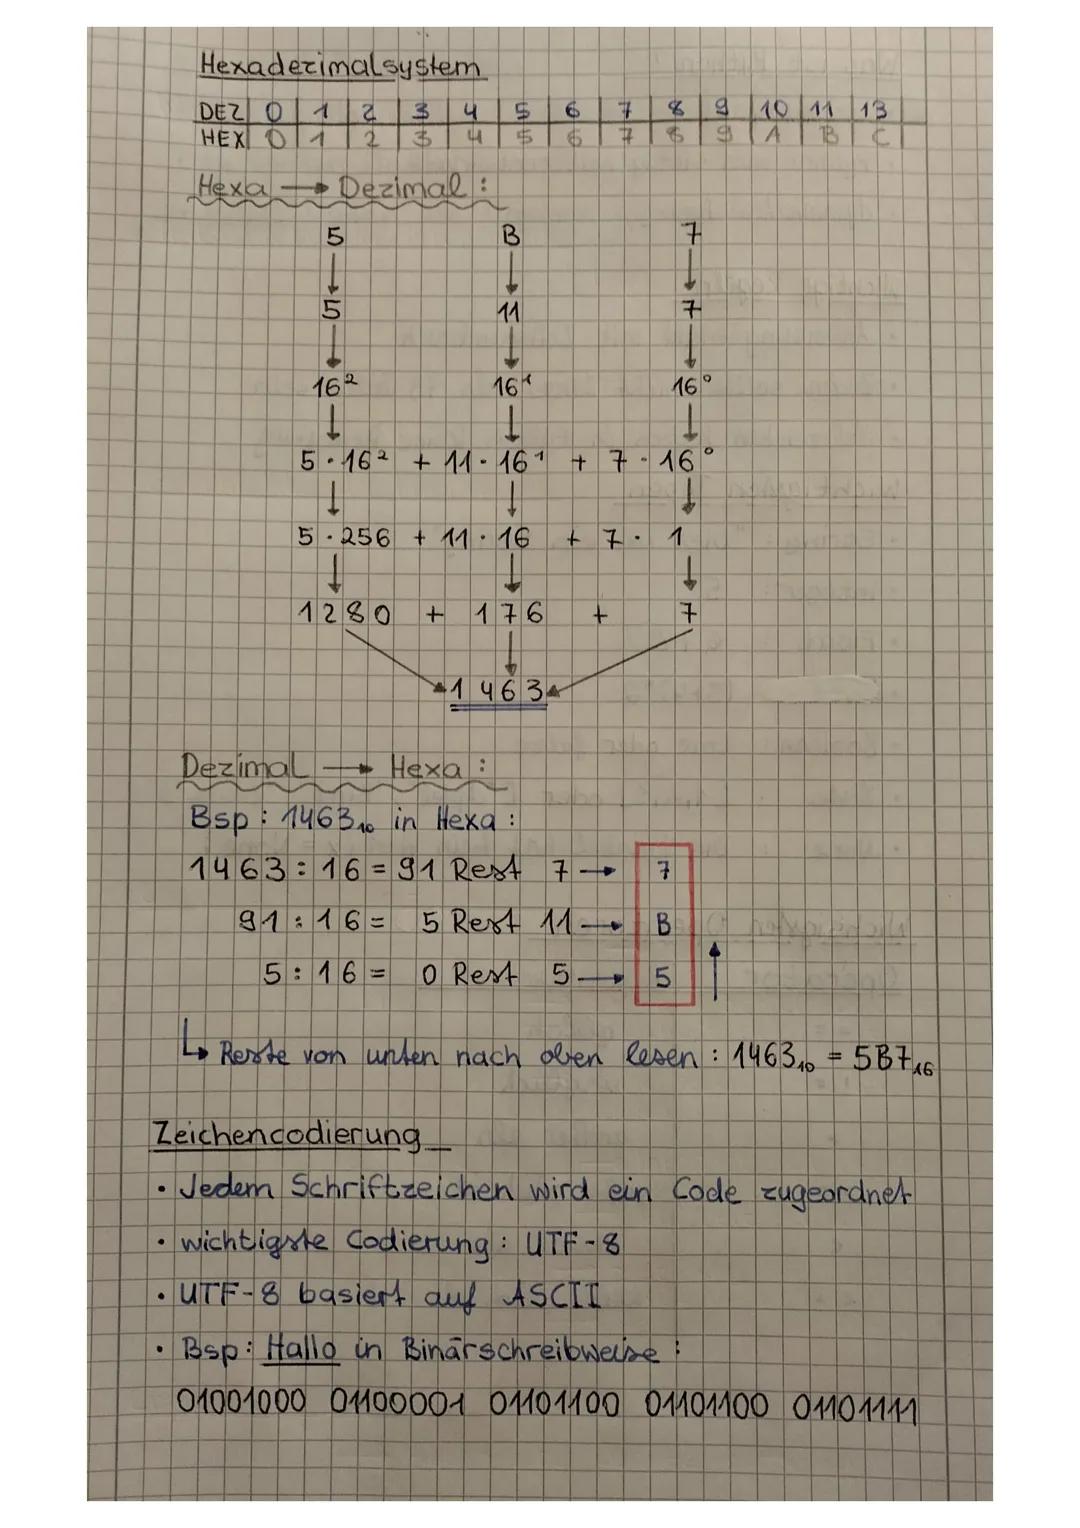 Hexadezimalsystem
DEZ 0 1 2 3 4 5 6 7 8 9 10 11 13
HEX 0 1 2 3 4 5 6 7 8 9 A B C
Hexa → Dezimal :
5 B 7
↓ ↓ ↓
5 11 7
↓ ↓ ↓
16² 16¹ 16⁰
↓ ↓ ↓
5 · 16² + 11 · 16¹ + 7 · 16⁰
↓ ↓ ↓
5 · 256 + 11 · 16 + 7 · 1
↓ ↓ ↓
1280 + 176 + 7
1463
Dezimal → Hexa :
Bsp : 1463₁₀ in Hexa :
1463 : 16 = 91 Rest 7 → 7
91 : 16 = 5 Rest 11 → B
5 : 16 = 0 Rest 5 → 5 ↑
↳ Reste von unten nach oben lesen : 1463₁₀ = 5B7₁₆
Zeichencodierung
· Jedem Schriftzeichen wird ein Code zugeordnet
· wichtigste Codierung : UTF-8
· UTF-8 basiert auf ASCII
· Bsp : Hallo in Binärschreibweise :
01001000 01100001 01101100 01101100 01101111